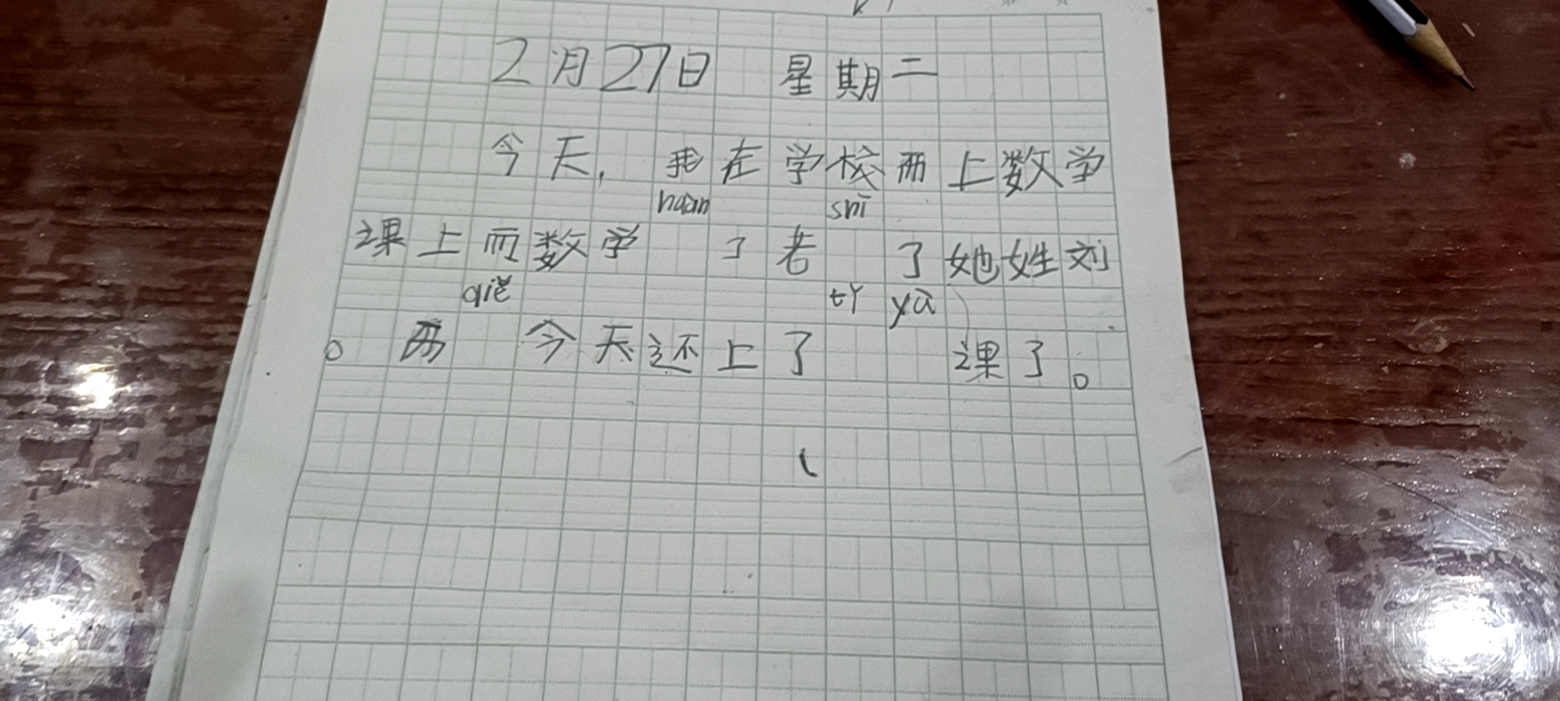 2月27日 星期二
今天,我在学校而上数学
huàn shī
课上而数学 了老 了她姓刘
qiě tǐ yù
。而 今天还上了 课了。